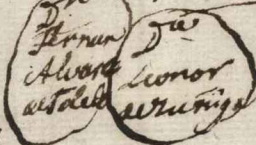 Dn
Fernan
Alvarez
de Toledo
Da
Leonor
de Zuñiga